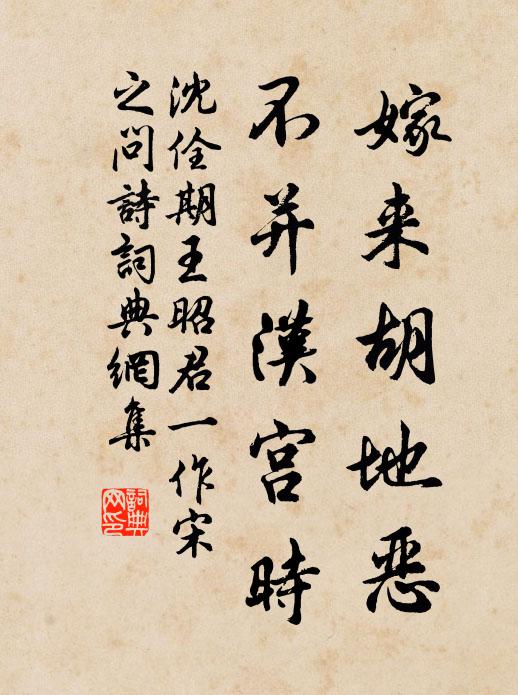 嫁来胡地恶
不并漢宫時
沈佺期王昭君一作宋
之問詩詞典網集
詞典
网印